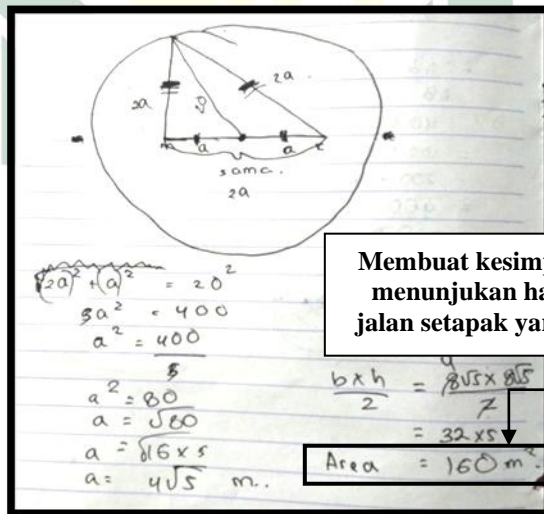 2a
2a
m
a
a
sama.
2a
(2a)² + (a)² = 20²
5a² = 400
a² = 400
5
a² = 80
a = √80
a = √16 x 5
a = 4√5 m..
Membuat kesimp
menunjukan ha
jalan setapak yan
4
b x h = 8√5 x 8√5
2 2
= 32 x 5
Area = 160 m².